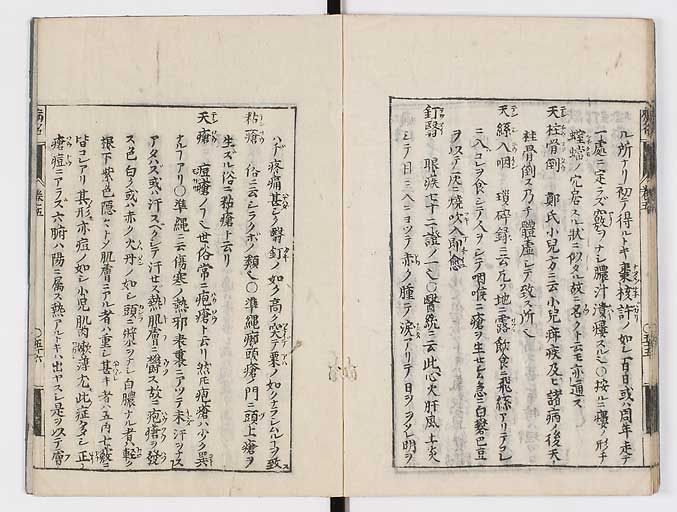 ル所ナリ初テ得ルトキ棗核許ノ如シ一百日或ハ周年走テ
一處ニ定ラズ竅ヲナシ膿汁潰爛スル〇按ルニ瘻ノ形チ
螳蠰ノ穴居スル狀ニ似タル故ニ名クト云モ亦通ス
天柱骨倒 鄭氏小兒方ニ云小兒疳疾及ビ諸病ノ後天
柱骨倒ス乃チ體虛シテ致ス所ヘ
天絲入咽 瑣碎錄ニ云凡ソ地ニ露飲食ニ飛絲アリテコレ
ニ入コレヲ食シテ人ヲシテ咽喉ニ瘡ヲ生セシム急ニ白礬巴豆
ヲ以テ灰ニ燒吹入即愈
釘翳 眼疾七十二證ノ一〇醫統ニ云此心火肝風上炎
シテ目ニ入ニヨツテ赤ク腫テ淚アリテ日ヲヲソレ明ヲ
病名 卷五
ハヂ疼痛甚シク翳釘ノ如ク高ク突テ粟ノ如クナラシムルヲ致ス
粘瘡 俗ニ云シラクボノ類〇準繩癤頭瘡ノ門ニ頭上瘡ヲ
生ズル俗ニ粘瘡ト云リ
天瘡 痘瘡ノ一世俗常ニ疱瘡ト云リ然圧疱瘡ハ少ク異
ナルフアリ〇準繩ニ云傷寒ノ熱邪表裏ニアツテ未汗ヲナス
アタハズ或ハ汗スベクシテ汗セズ熱肌膚ニ鬱ス故ニ疱瘡ヲ發
ス色白ク或ハ赤ク火丹ノ如シ頭ニ漿ヲナシ白膿ナル者ハ輕シ
根下紫色隱々トシテ肌膚ニアル者ハ重シ甚キ者ハ五內七竅ニ
皆コレアリ其形亦痘ノ如シ小兒肌肉嫩薄尤此症多シ正シ
瘡痘ニアラズ六腑ハ陽ニ属ス熱アルトキハ出ヤスシ是ヲ以テ膚
〇五十六